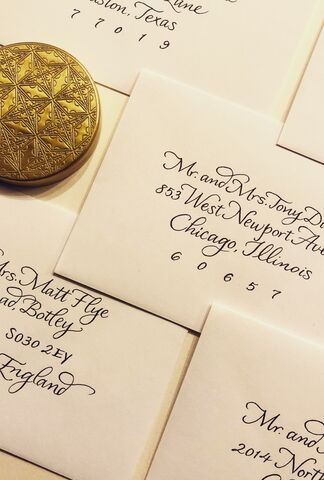 Lane
Houston, Texas
77019
Mr. and Mrs. Tony
853 West Newport Ave
Chicago, Illinois
60657
Mrs. Matt Flye
Botley
SO30 2EY
England
Mr. and
2014 North